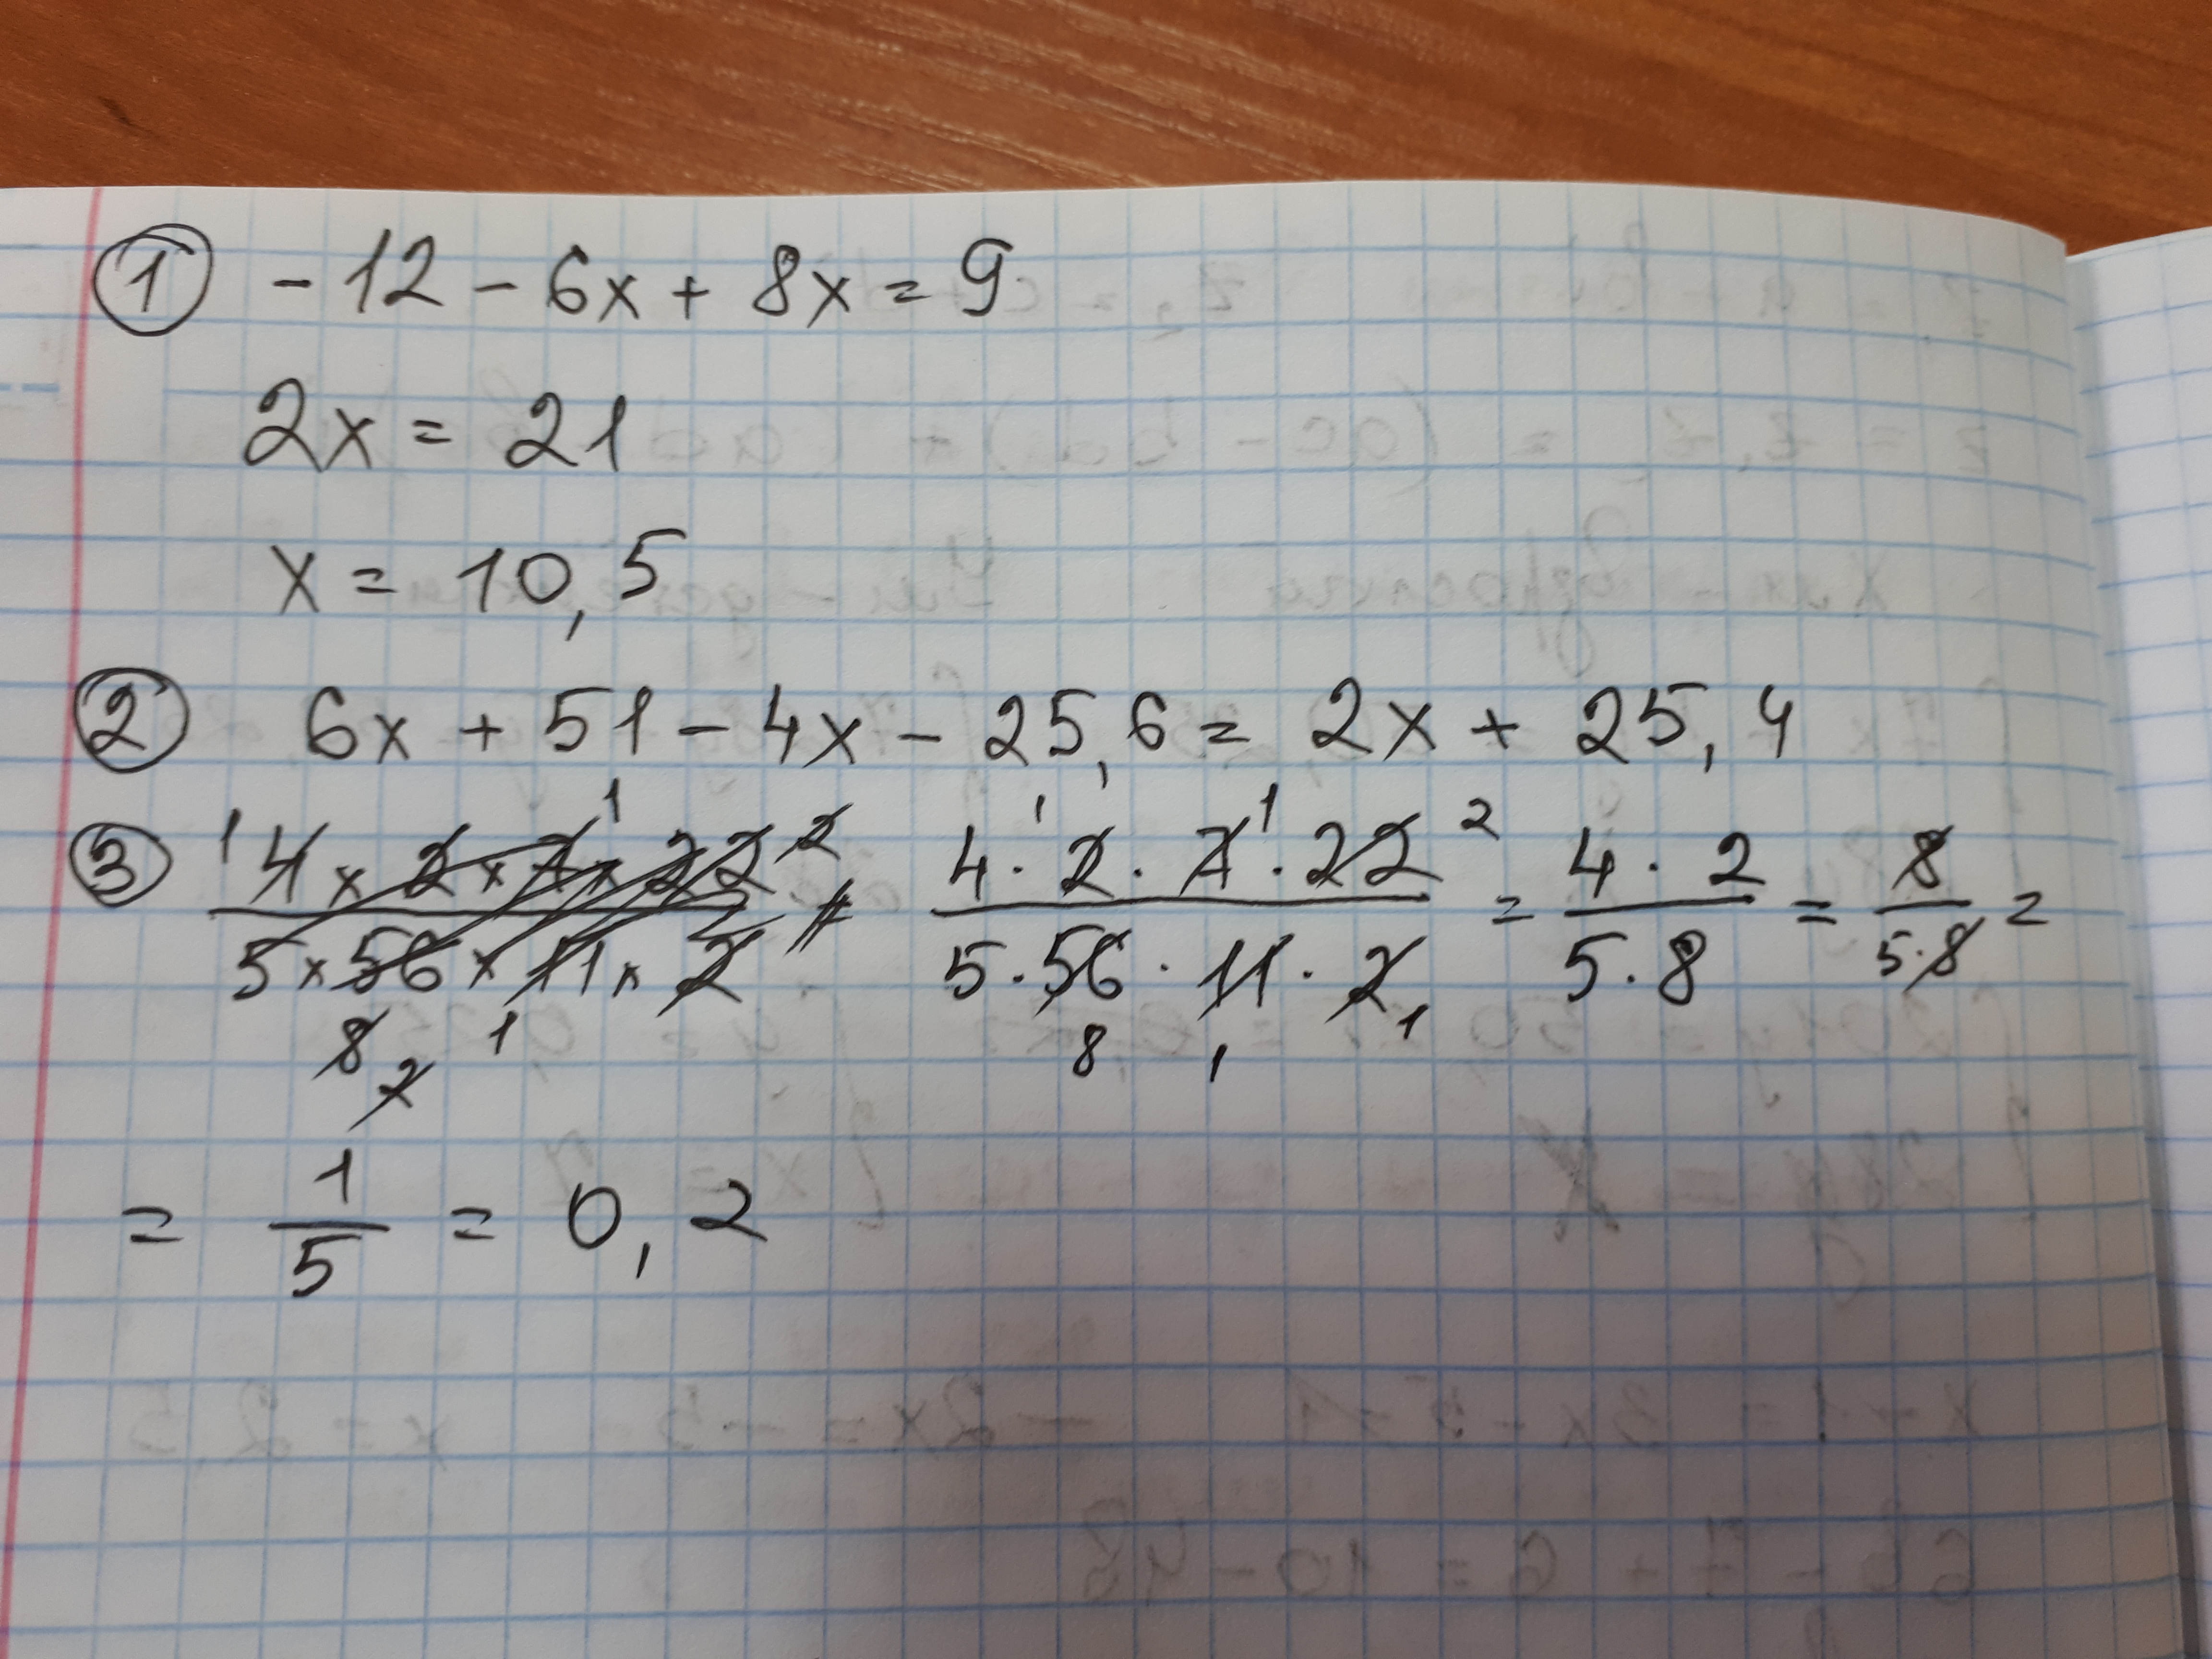 ① -12 - 6x + 8x = 9
2x = 21
x = 10,5
② 6x + 51 - 4x - 25,6 = 2x + 25,4
③ 4 x 2 x 7 x 22 / 5 x 56 x 11 x 2 = 4 · 2 · 7 · 22 / 5 · 56 · 11 · 2 = 4 · 2 / 5 · 8 = 8 / 5 · 8 =
= 1 / 5 = 0,2